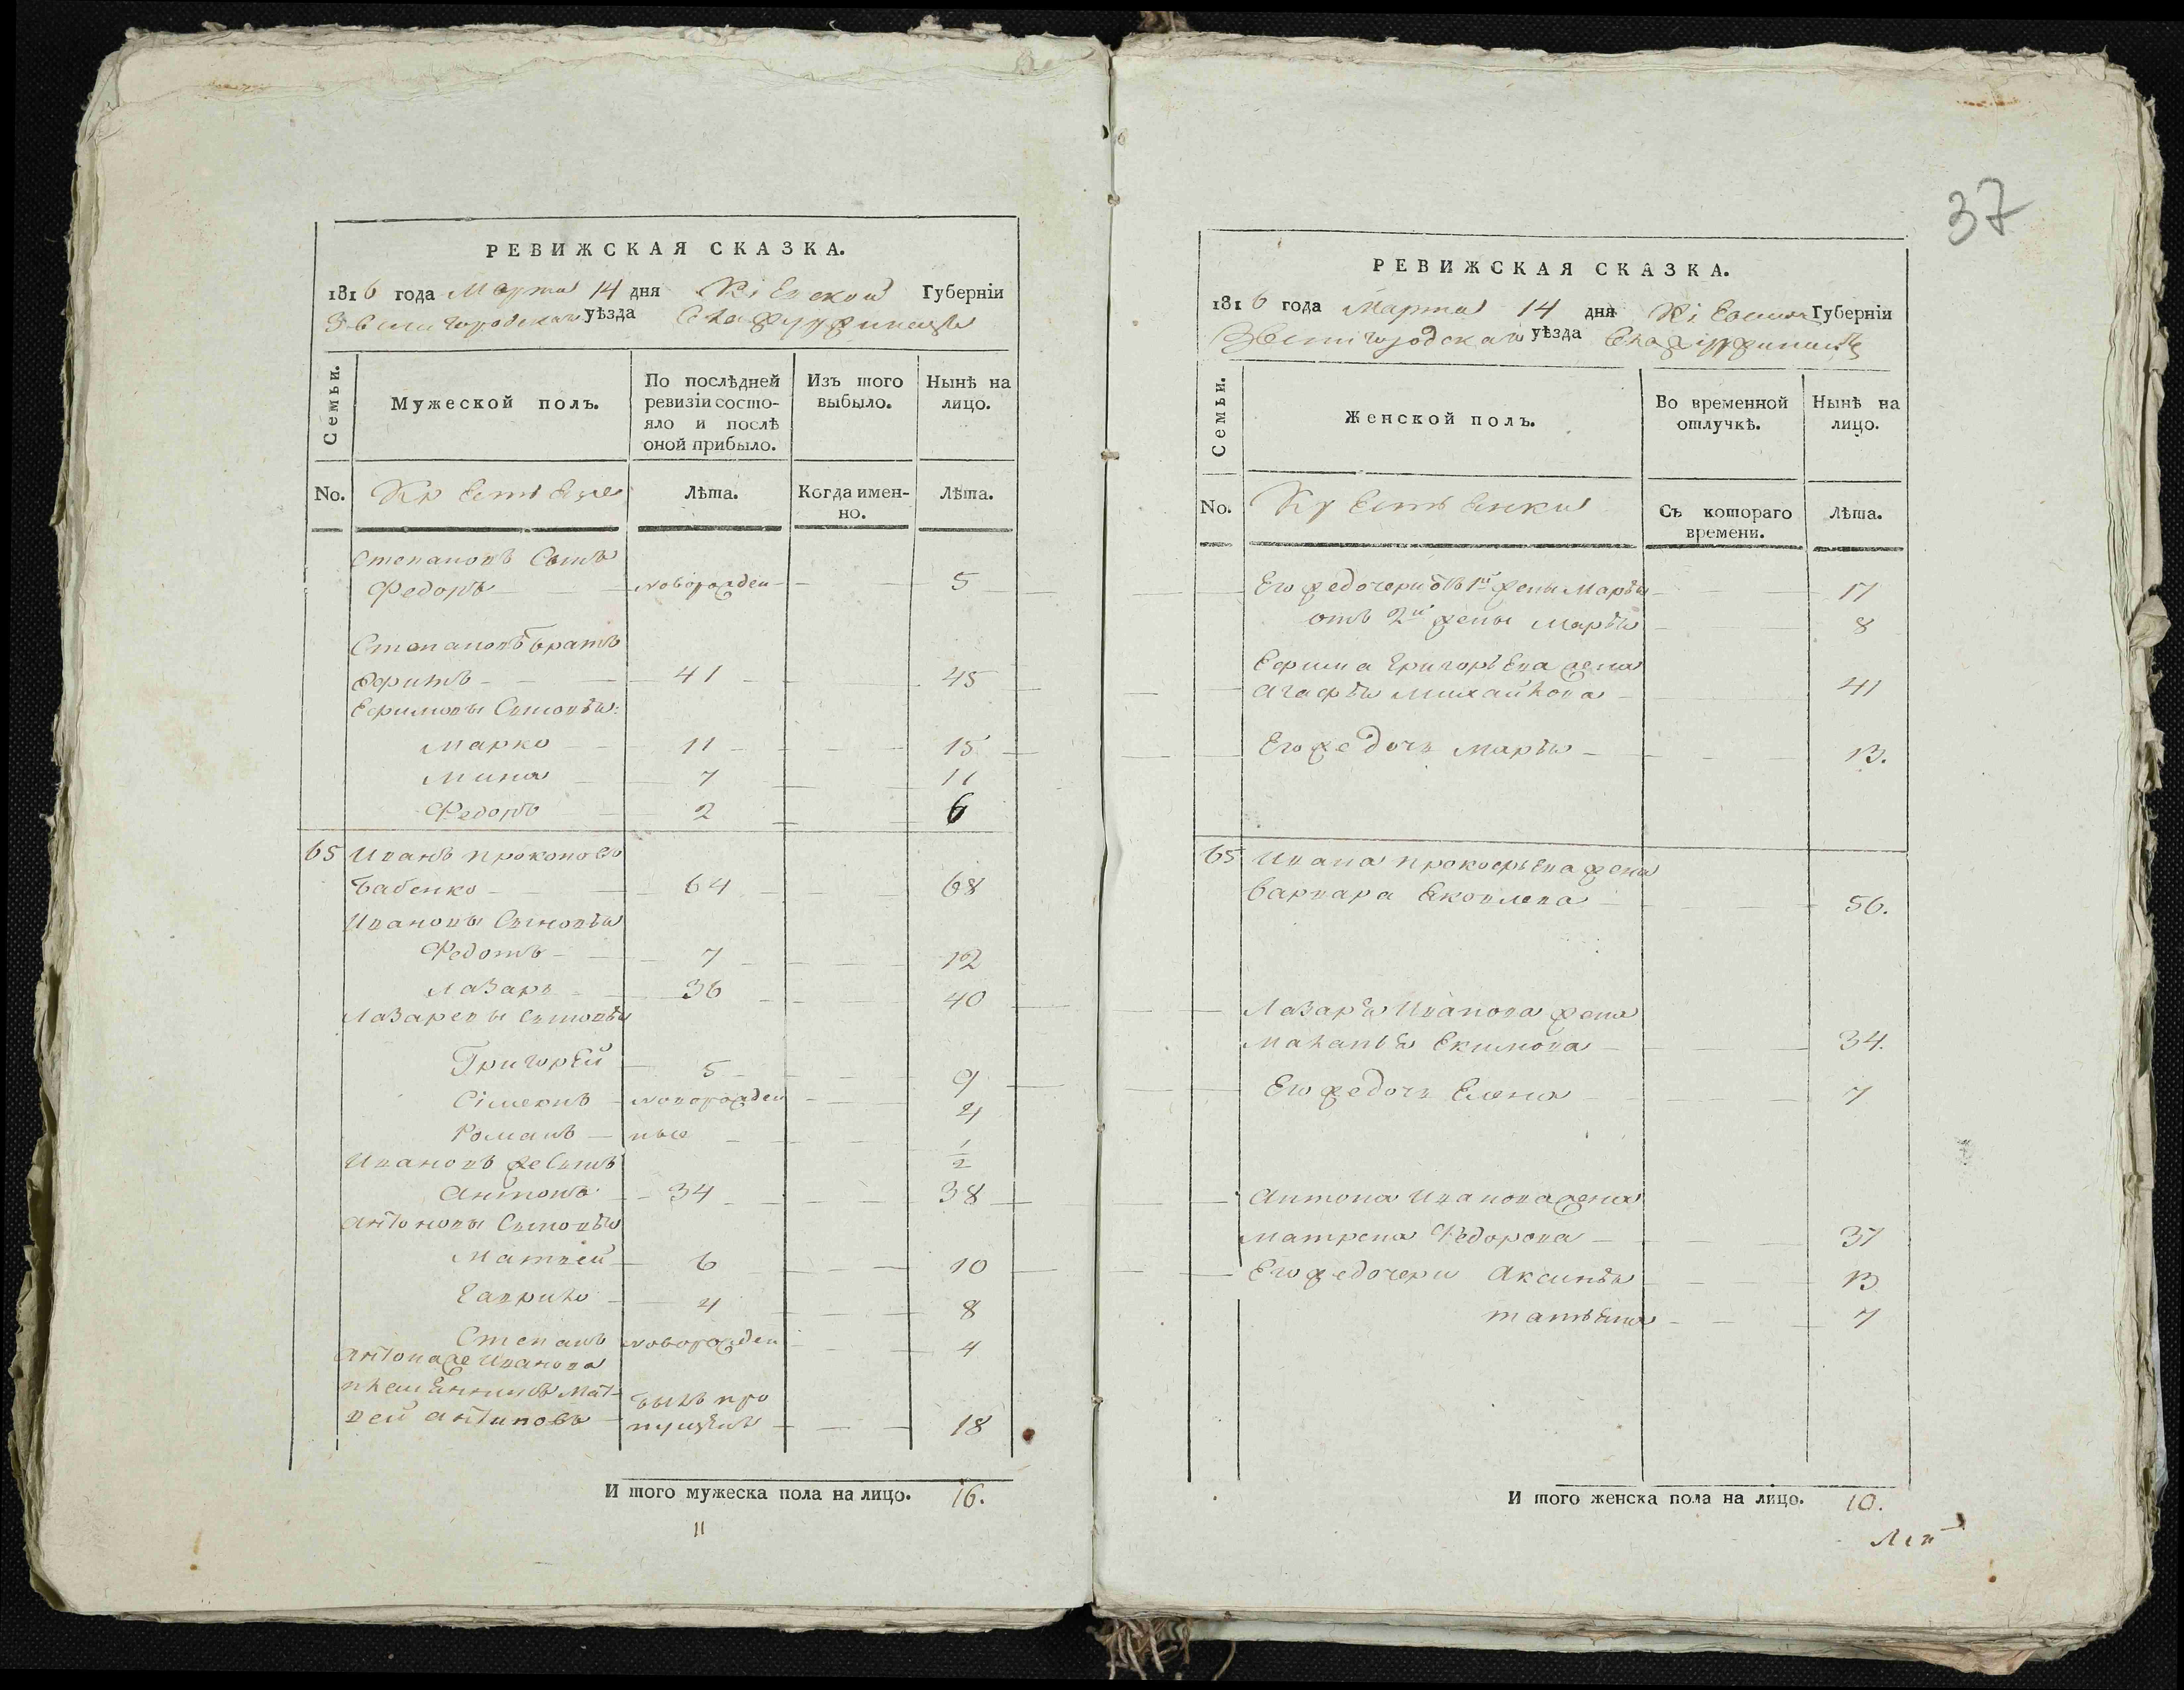 РЕВИЖСКАЯ СКАЗКА.
1816 года Марта 14 дня Кіевской Губерніи
Звенигородскаго уѣзда
Семьи.
Мужеской полъ.
По послѣдней ревизіи состояло и послѣ оной прибыло.
Изъ того выбыло.
Нынѣ на лицо.
No. Крестьяне Лѣта. Когда именно. Лѣта.
Степановъ Сынъ
Федоръ новорожден 5
Степановъ братъ
Ефимъ 41 45
Ефимовы Сыновья:
Марко 11 15
Мина 7 11
Федоръ 2 6
65 Иванъ Прокоповъ
Бабенко 64 68
Ивановы Сыновья
Федотъ 7 12
Лазарь 36 40
Лазаревы Сыновья
Григорей 5 9
Сімеонъ новорожден 4
Романъ ные 1/2
Ивановъ же Сынъ
Антонъ 34 38
Антоновы Сыновья
Матвей 6 10
Гаврило 4 8
Степанъ новорожден 4
Антона же Иванова
племянникъ Мат-
вей Антиповъ былъ про
пущенъ 18
И того мужеска пола на лицо. 16.
11
37
РЕВИЖСКАЯ СКАЗКА.
1816 года Марта 14 дня Губерніи
Звенигородскаго уѣзда
Семьи.
Женской полъ.
Во временной отлучкѣ.
Нынѣ на лицо.
No. Крестьянки Съ котораго времени. Лѣта.
Его же дочери отъ 1й жены Марья 17
отъ 2й жены Марья 8
Ефима Григорьева жена
Агафья Михайлова 41
Его же дочь Марья 13.
65 Ивана Прокофьева жена
Варвара Яковлева 56.
Лазаря Иванова жена
Маланья Екимова 34.
Его же дочь Елена 7
Антона Иванова жена
Матрена Федорова 37
Его же дочери Аксинья 13
Татьяна 7
И того женска пола на лицо. 10.